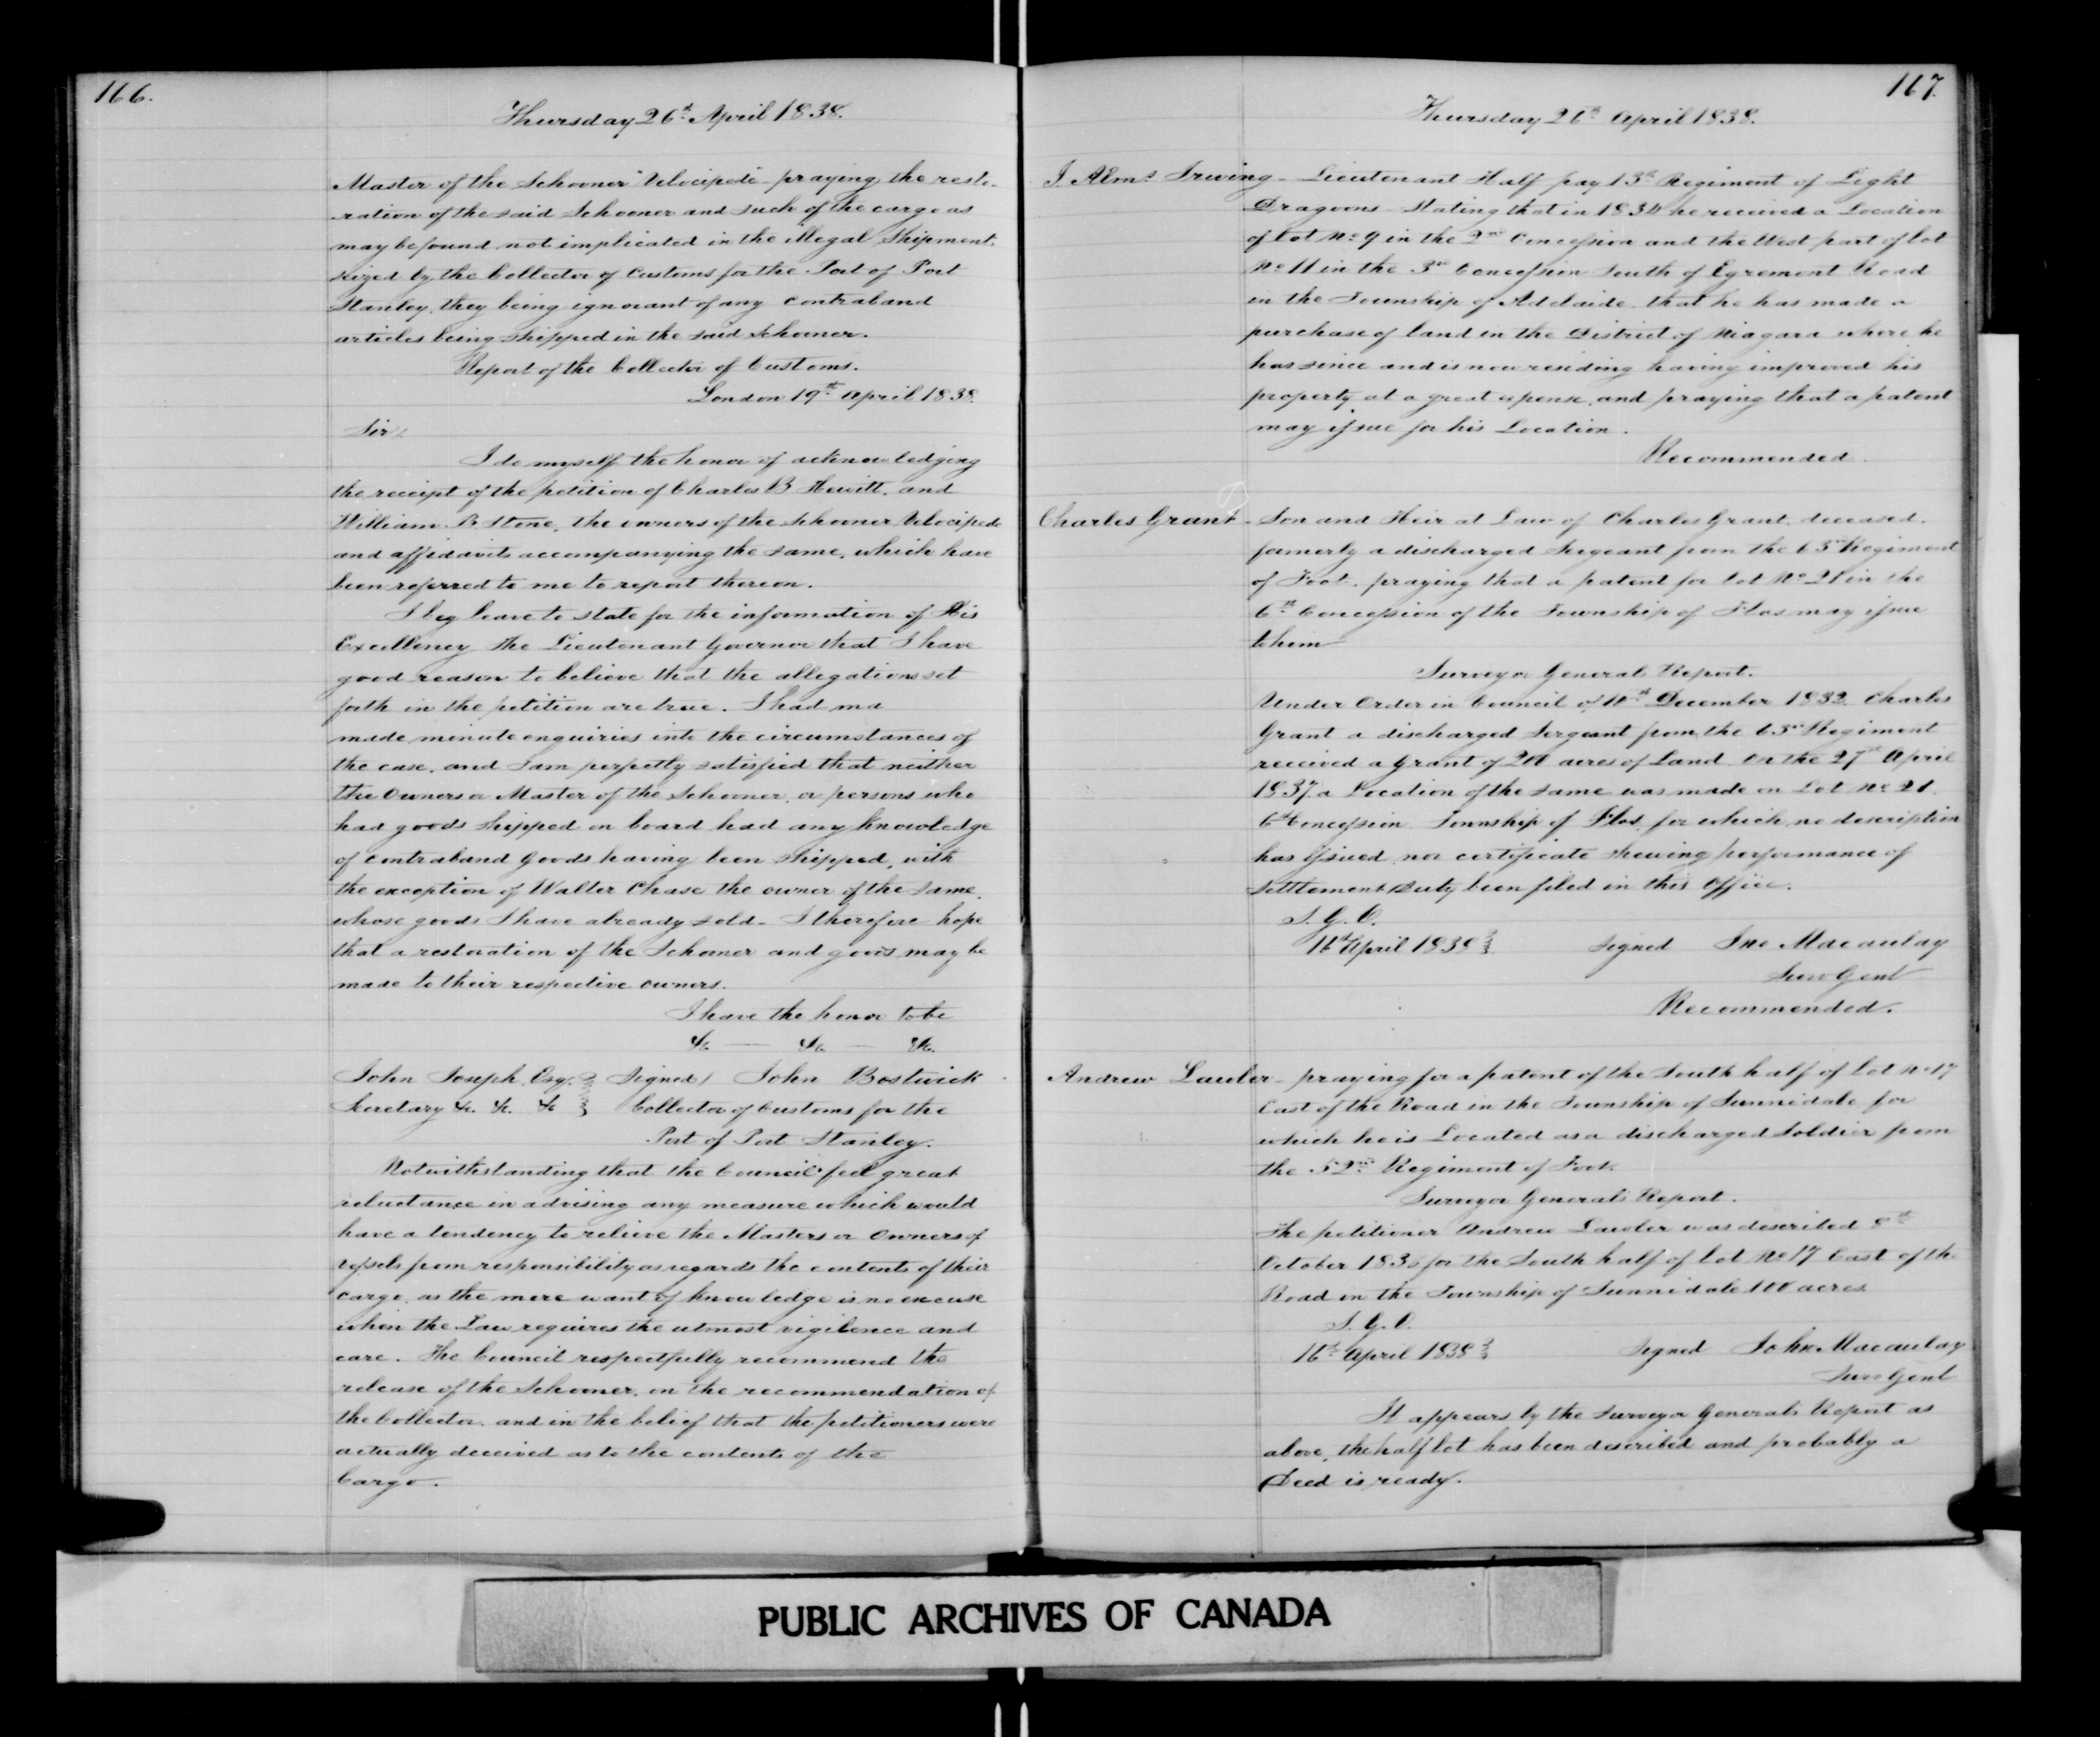 166.
Thursday 26th April 1838.
Master of the Schooner "Velocipede - praying the resto-
ration of the said Schooner and such of the cargo as
may be found not implicated in the illegal Shipment,
seized by the Collector of Customs for the Port of Port
Stanley, they being ignorant of any contraband
articles being shipped in the said Schooner.
Report of the Collector of Customs.
London 19th April 1838.
Sir,
I do myself the honor of acknowledging
the receipt of the petition of Charles B Hewitt, and
William B Stone, the owners of the Schooner Velocipede
and affidavits accompanying the same, which have
been referred to me to report thereon.
I beg leave to state for the information of His
Excellency the Lieutenant Governor that I have
good reason to believe that the allegations set
forth in the petition are true. I had ma
made minute enquiries into the circumstances of
the case, and I am perfectly satisfied that neither
the Owners or Master of the Schooner, or persons who
had goods shipped on board had any knowledge
of contraband Goods having been shipped, with
the exception of Walter Chase the owner of the same,
whose goods I have already sold - I therefore hope
that a restoration of the Schooner and goods may be
made to their respective owners.
I have the honor to be
&c. — &c. — &c.
John Joseph Esqr. } Signed / John Bostwick
Secretary &c. &c. &c } Collector of Customs for the
Port of Port Stanley.
Notwithstanding that the Council feel great
reluctance in advising any measure which would
have a tendency to relieve the Masters or Owners of
vessels from responsibility as regards the contents of their
cargo, as the mere want of knowledge is no excuse
when the Law requires the utmost vigilence and
care. The Council respectfully recommend the
release of the Schooner, on the recommendation of
the Collector, and in the belief that the petitioners were
actually deceived as to the contents of the
Cargo.
167.
Thursday 26th April 1838.
Irving - Lieutenant Half pay 13th Regiment of Light
Dragoons - Stating that in 1834 he received a Location
of Lot No 9 in the 2nd Concession and the West part of lot
No 11 in the 3rd Concession South of Egremont Road
in the Township of Adelaide, that he has made a
purchase of land in the District of Niagara where he
has since and is now residing having improved his
property at a great expense, and praying that a patent
may issue for his Location.
Recommended.
Charles Grant - Son and Heir at Law of Charles Grant, deceased,
formerly a discharged Sergeant from the 63rd Regiment
of Foot, praying that a patent for lot No 21 in the
6th Concession of the Township of Flos may issue
to him
Surveyor Generals Report.
Under Order in Council of December 1832 Charles
Grant a discharged Sergeant from the 63rd Regiment
received a Grant of 200 acres of Land On the 27th April
1837, a Location of the same was made on Lot No 21.
6th Concession Township of Flos, for which no description
has issued, nor certificate shewing performance of
Settlement Duty been filed in this Office.
S. G. O.
16th April 1838 } Signed Jno Macaulay
Surv Genl
Recommended.
Andrew Lawler - praying for a patent of the South half of lot No 17
East of the Road in the Township of Sunnidale for
which he is Located as a discharged Soldier from
the 52nd Regiment of Foot.
Surveyor Generals Report.
The petitioner Andrew Lawler was described 8th
October for the South half of lot No 17 East of the
Road in the Township of Sunnidale 100 acres.
S. G. O.
16th April 1838 } Signed John Macaulay
Surv Genl
It appears by the Surveyor Generals Report as
above, the half lot has been described and probably a
Deed is ready.
PUBLIC ARCHIVES OF CANADA